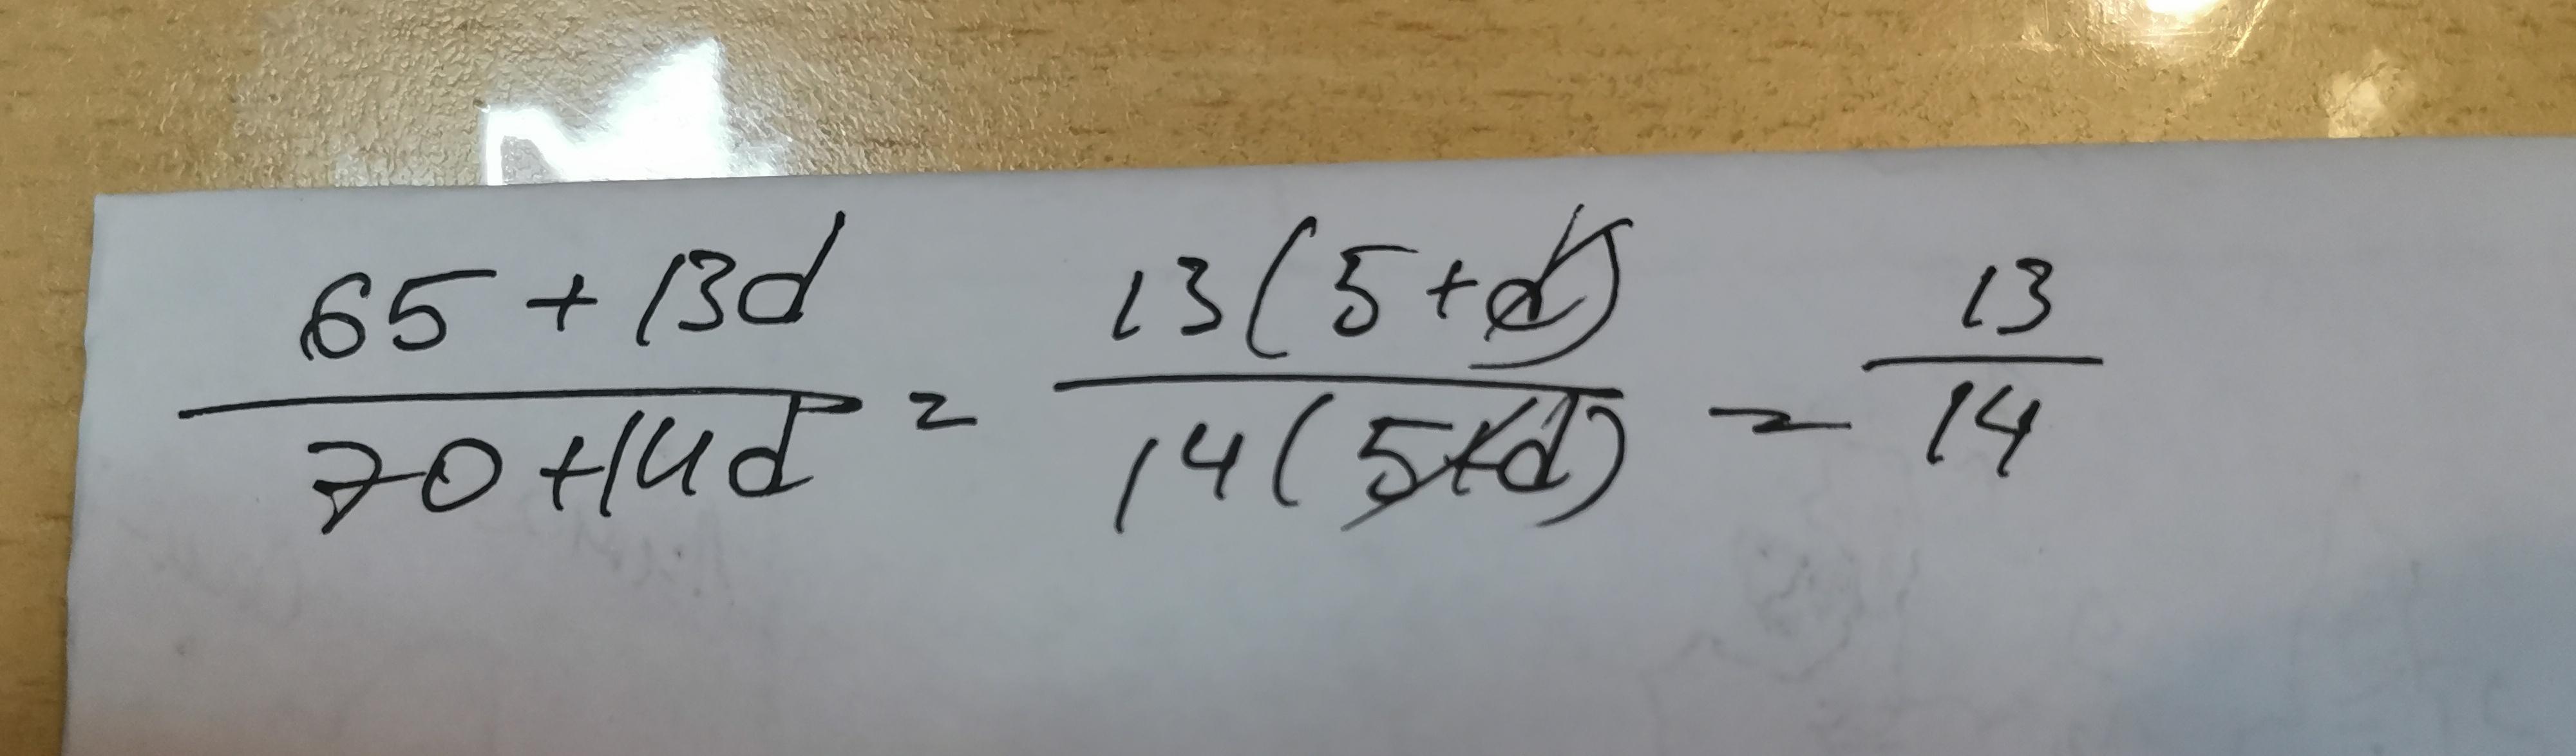 (65 + 13d)/(70 + 14d) = 13(5+d)/14(5+d) = 13/14